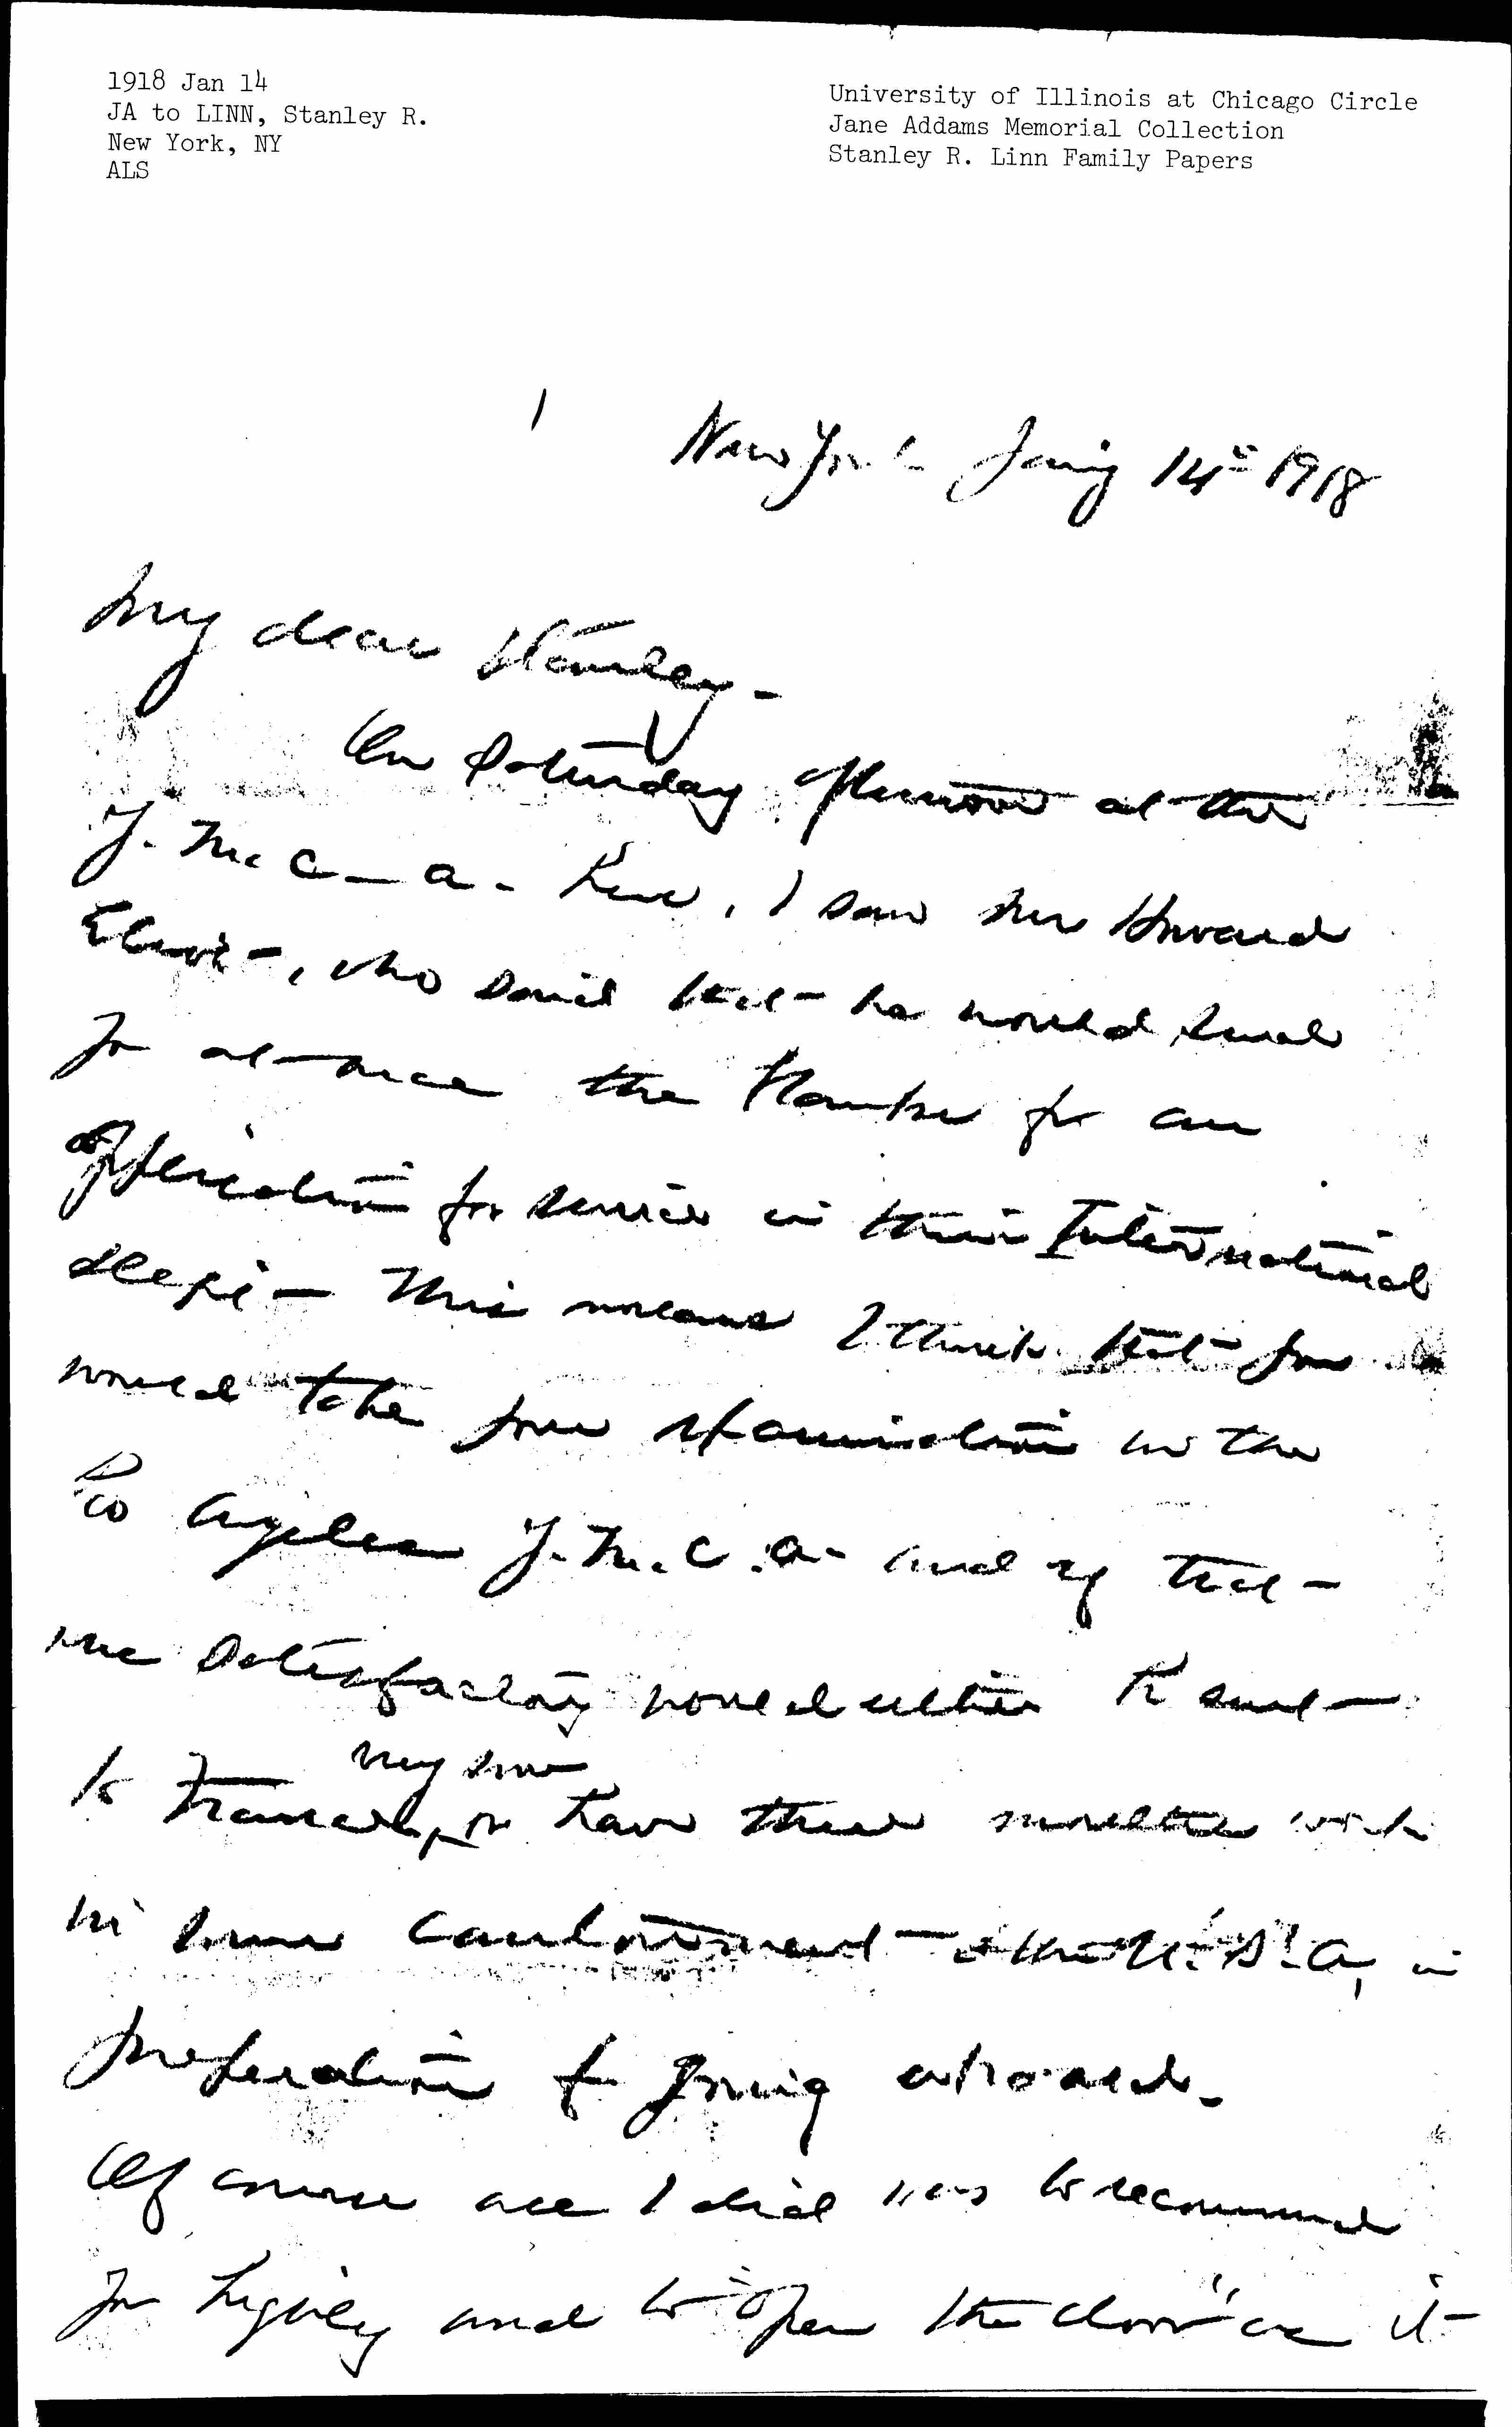 1918 Jan 14
JA to LINN, Stanley R.
New York, NY
ALS
University of Illinois at Chicago Circle
Jane Addams Memorial Collection
Stanley R. Linn Family Papers
1
New York Jan'y 14" 1918
My dear Stanley -
On Saturday afternoon at the
Y. M. C. A. here, I saw Mr Howard
who said that he would send
you at once the blanks for an
application for service in their International
dept - This means I think that you
would take your examination in the
Los Angeles Y. M. C. A. and if that
were satisfactory would either be sent
to France
very soon
, or have three months work
in some cantonment in the U. S. A, in
preparation for going abroad.
Of course all I did was to recommend
you highly and to "open the door" as it